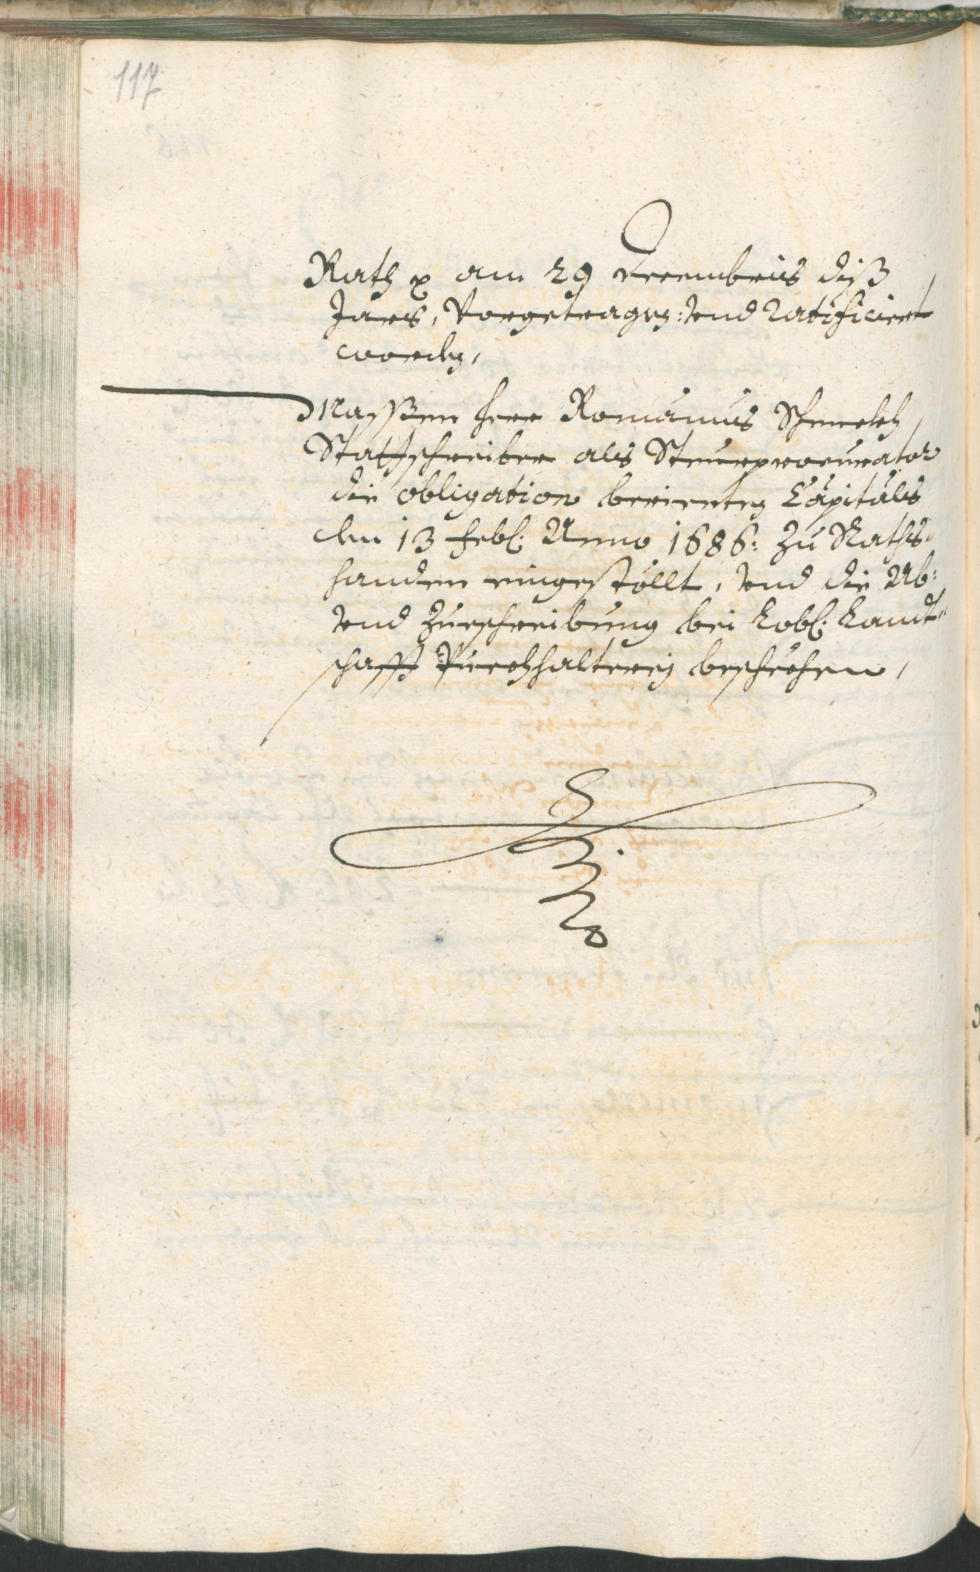 117
Rath etc. am 29 Decembris diß
Jars, Vorgetragen: vnd Ratificiert
worden,
Massen Herr Romanus Schmelch
Stattschreiber als Steurprocurator
die obligation berierten Capitals
den 13 Febl: Anno 1686: zu Raths-
handen eingeställt, vnd die Ab:
vnd Zueschreibung bei Lobl: Landt-
schafft Puechhalterej beschechen,